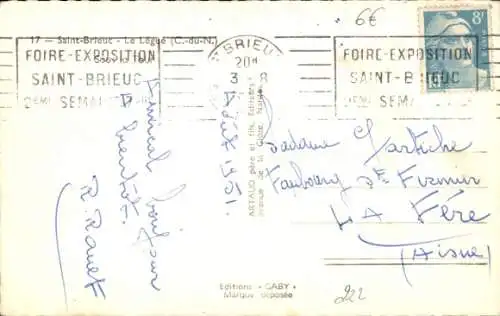 6€
17 - Saint-Brieuc - Le Légué (C.-du-N.)
FOIRE-EXPOSITION
SAINT-BRIEUC
2EME SEMAINE
ST BRIEUC
20H
3 - 8
FOIRE-EXPOSITION
SAINT-BRIEUC
2EME SEMAINE
8F
Août 1951.
Amical bonjour
A bientôt.
ARTAUD père et fils, Éditeurs
avenue de la Gloire, Nantes
Madame
Faubourg St Firmin
LA Fère
(Aisne)
Editions "GABY"
Marque déposée
222